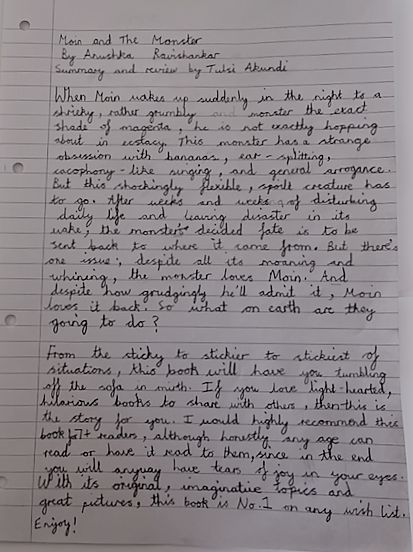 Moin and The Monster
By Anushka Ravishankar
Summary and review by Tulsi Akundi
When Moin wakes up suddenly in the night to a
shrieky, rather grumbly monster the exact
shade of magenta, he is not exactly hopping
about in ecstacy. This monster has a strange
obsession with bananas, ear-splitting,
cacophony-like singing, and general arrogance.
But this shockingly flexible, spoilt creature has
to go. After weeks and weeks of disturbing
daily life and leaving disaster in its
wake, the monsters decided fate is to be
sent back to where it came from. But there's
one issue; despite all its moaning and
whining, the monster loves Moin. And
despite how grudgingly he'll admit it, Moin
loves it back. So what on earth are they
going to do?
From the sticky to stickier to stickiest of
situations, this book will have you tumbling
off the sofa in mirth. If you love light-hearted,
hilarious books to share with others, then this is
the story for you. I would highly recommend this
book for 7+ readers, although honestly any age can
read or have it read to them, since in the end
you will anyway have tears of joy in your eyes.
With its original, imaginative topics and
great pictures, this book is No.1 on any wish list.
Enjoy!